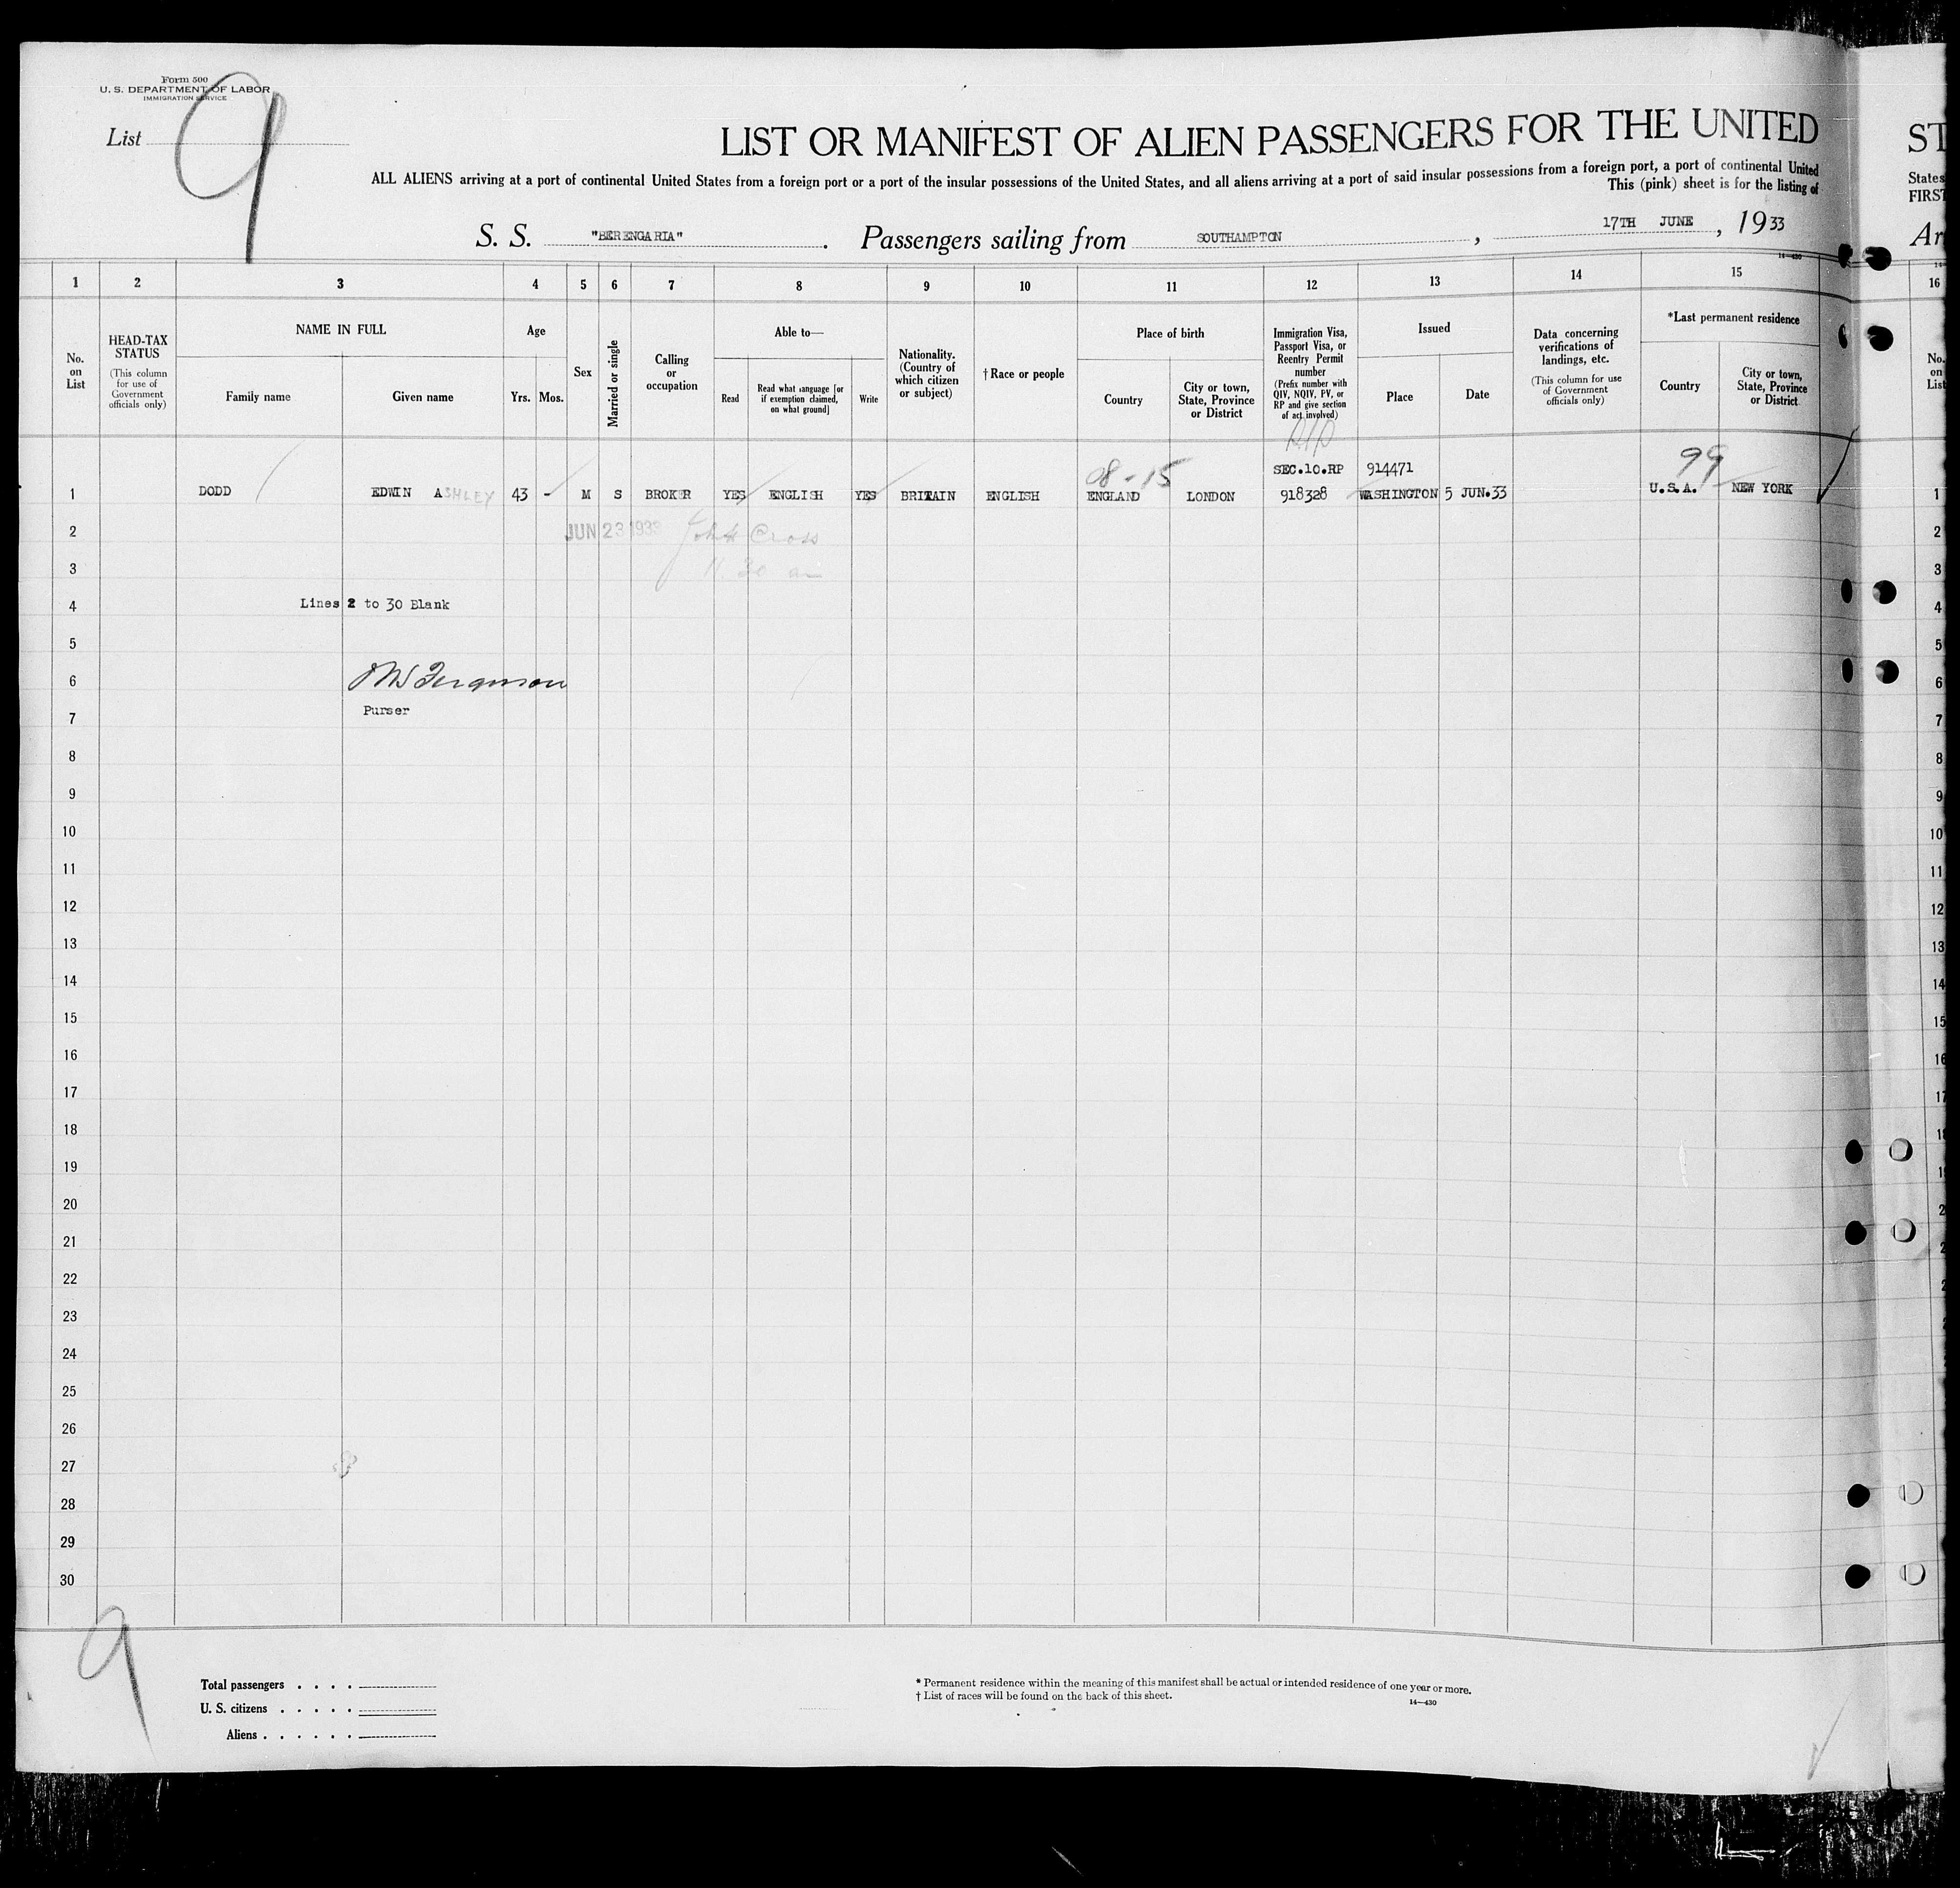 Form 500
U. S. DEPARTMENT OF LABOR
IMMIGRATION SERVICE
List 9
LIST OR MANIFEST OF ALIEN PASSENGERS FOR THE UNITED
ST
ALL ALIENS arriving at a port of continental United States from a foreign port or a port of the insular possessions of the United States, and all aliens arriving at a port of said insular possessions from a foreign port, a port of continental United
States
This (pink) sheet is for the listing of
FIRST
S. S. "BERENGARIA". Passengers sailing from SOUTHAMPTON, 17TH JUNE, 1933
Ar
14-430
1 2 3 4 5 6 7 8 9 10 11 12 13 14 15 16
No. on List
HEAD-TAX STATUS
(This column for use of Government officials only)
NAME IN FULL
Family name
Given name
Age
Yrs. Mos.
Sex
Married or single
Calling or occupation
Able to—
Read
Read what language [or if exemption claimed, on what ground]
Write
Nationality. (Country of which citizen or subject)
† Race or people
Place of birth
Country
City or town, State, Province or District
Immigration Visa, Passport Visa, or Reentry Permit number
(Prefix number with QIV, NQIV, PV, or RP and give section of act involved)
Issued
Place
Date
Data concerning verifications of landings, etc.
(This column for use of Government officials only)
*Last permanent residence
Country
City or town, State, Province or District
No. on List
08-15
99
SEC.10.RP 914471
1 DODD EDWIN ASHLEY 43 - M S BROKER YES ENGLISH YES BRITAIN ENGLISH ENGLAND LONDON 918328 WASHINGTON 5 JUN.33 U.S.A. NEW YORK 1
2 JUN 23 1933 Cross 2
3 11 30 am 3
4 Lines 2 to 30 Blank 4
5 5
6 Ferguson 6
7 Purser 7
8 8
9 9
10 10
11 11
12 12
13 13
14 14
15 15
16 16
17 17
18 18
19 19
20 2
21 2
22 2
23
24
25
26
27
28
29
30
9
Total passengers . . . .
U. S. citizens . . . . .
Aliens . . . . . .
* Permanent residence within the meaning of this manifest shall be actual or intended residence of one year or more.
† List of races will be found on the back of this sheet.
14-430